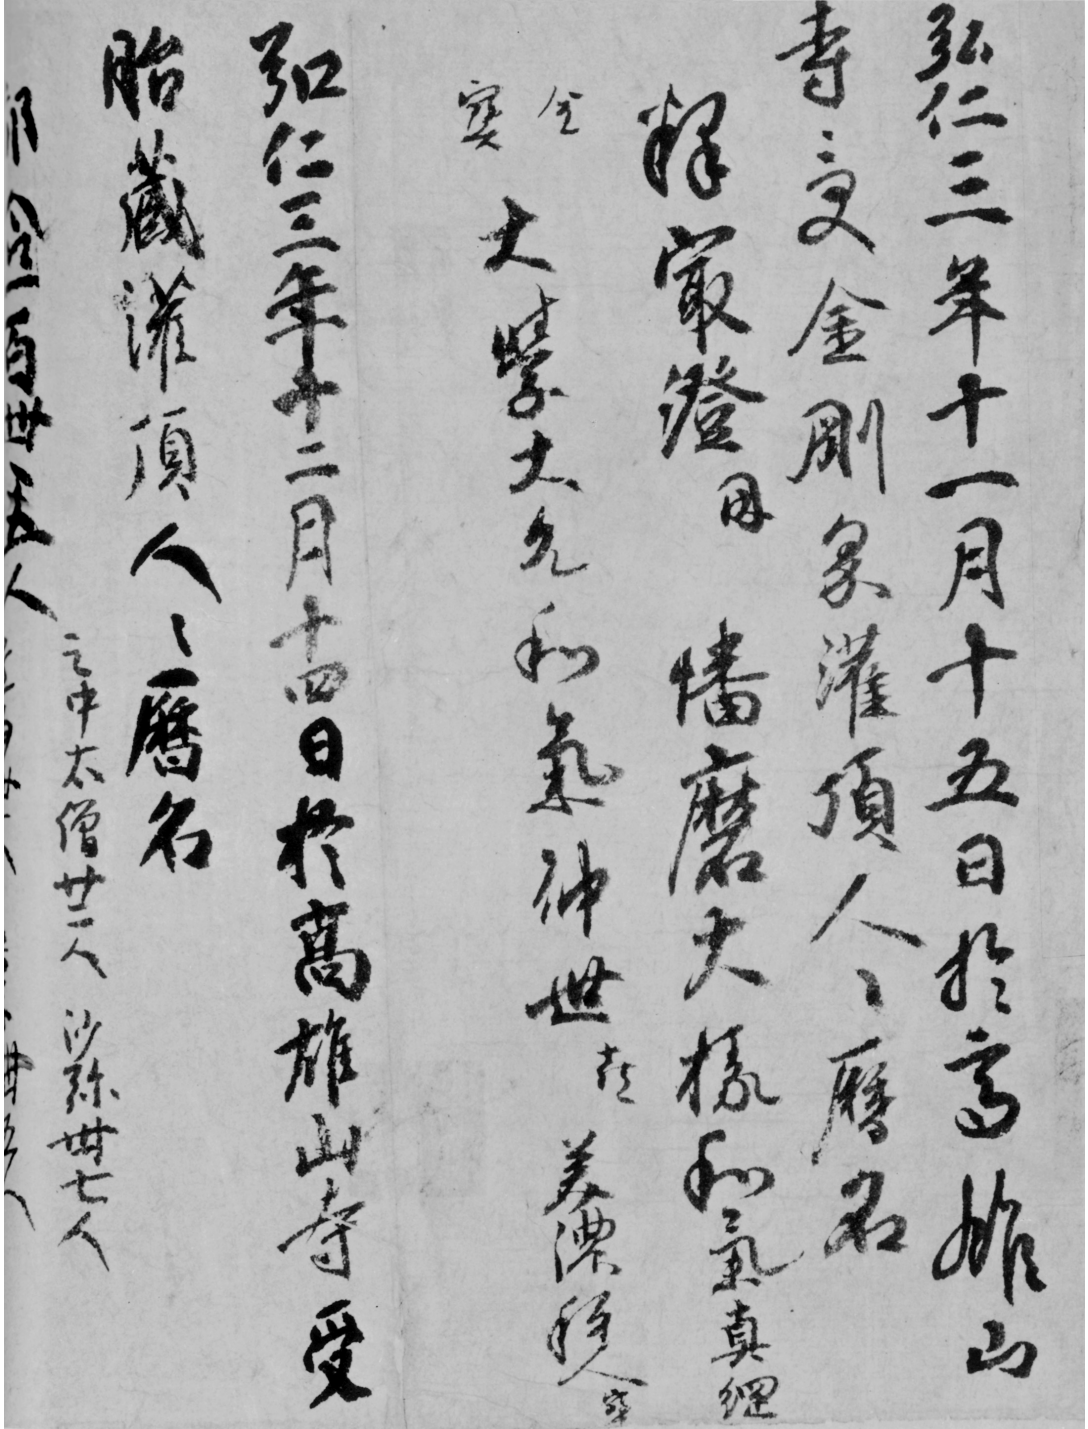 弘仁三年十一月十五日於高雄山
寺受金剛界灌頂人々暦名
釋最澄因 播磨大掾和氣真綱
金
寳
大學大允和氣仲世喜 美濃種人宝
弘仁三年十二月十四日於高雄山寺受
胎藏灌頂人々暦名
百卌五人
之中太僧廿二人 沙弥卅七人